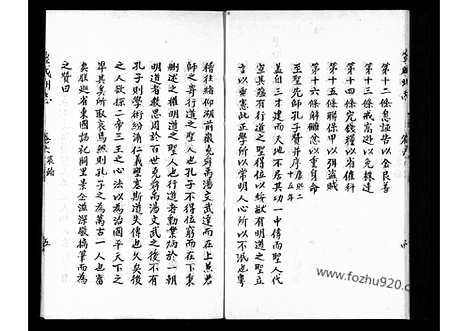 第十二條息誣告以全良善
第十三條戒窩逃以免株連
第十四條完錢糧以省催科
第十五條聯保甲以弭盜賊
第十六條解讎忿以重身命
至聖先師孔子贊并序康熙二十五年
蓋自三才建而天地不居其功一中傳而聖人代
宣其蘊有行道之聖得位以綏猷有明道之聖立
言以垂憲此正學所以常明人心所以不泯也粵
稽往緒仰溯前徽堯舜禹湯文武達而在上兼君
師之寄行道之聖人也孔子不得位窮而在下秉
刪述之權明道之聖人也行道者勳業炳於一朝
明道者教思周於百世堯舜禹湯文武之後不有
孔子則學術紛淆仁義堙塞斯道失傳也久矣後
之人欲探二帝三王之心法以為治國平天下之
準其奚所取衷焉然則孔子之為萬古一人也審
矣朕巡省東國謁祀闕里景企滋深敬摛筆而為
之贊曰
卷六
五
www.fozhu920.com